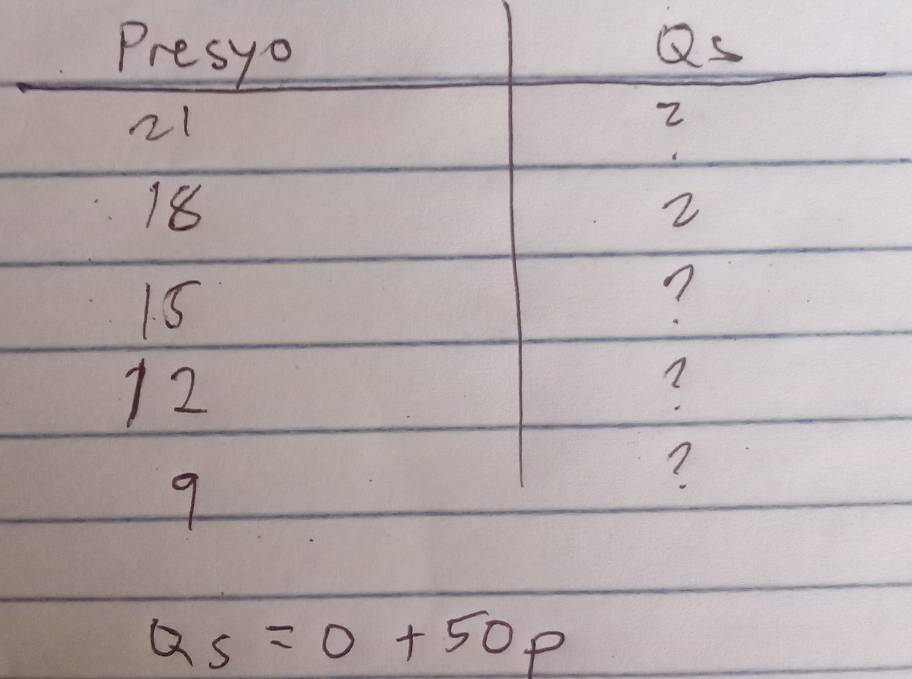 Presyo Qs
21 ?
18 ?
15 ?
12 ?
9 ?
Qs = 0 + 50p